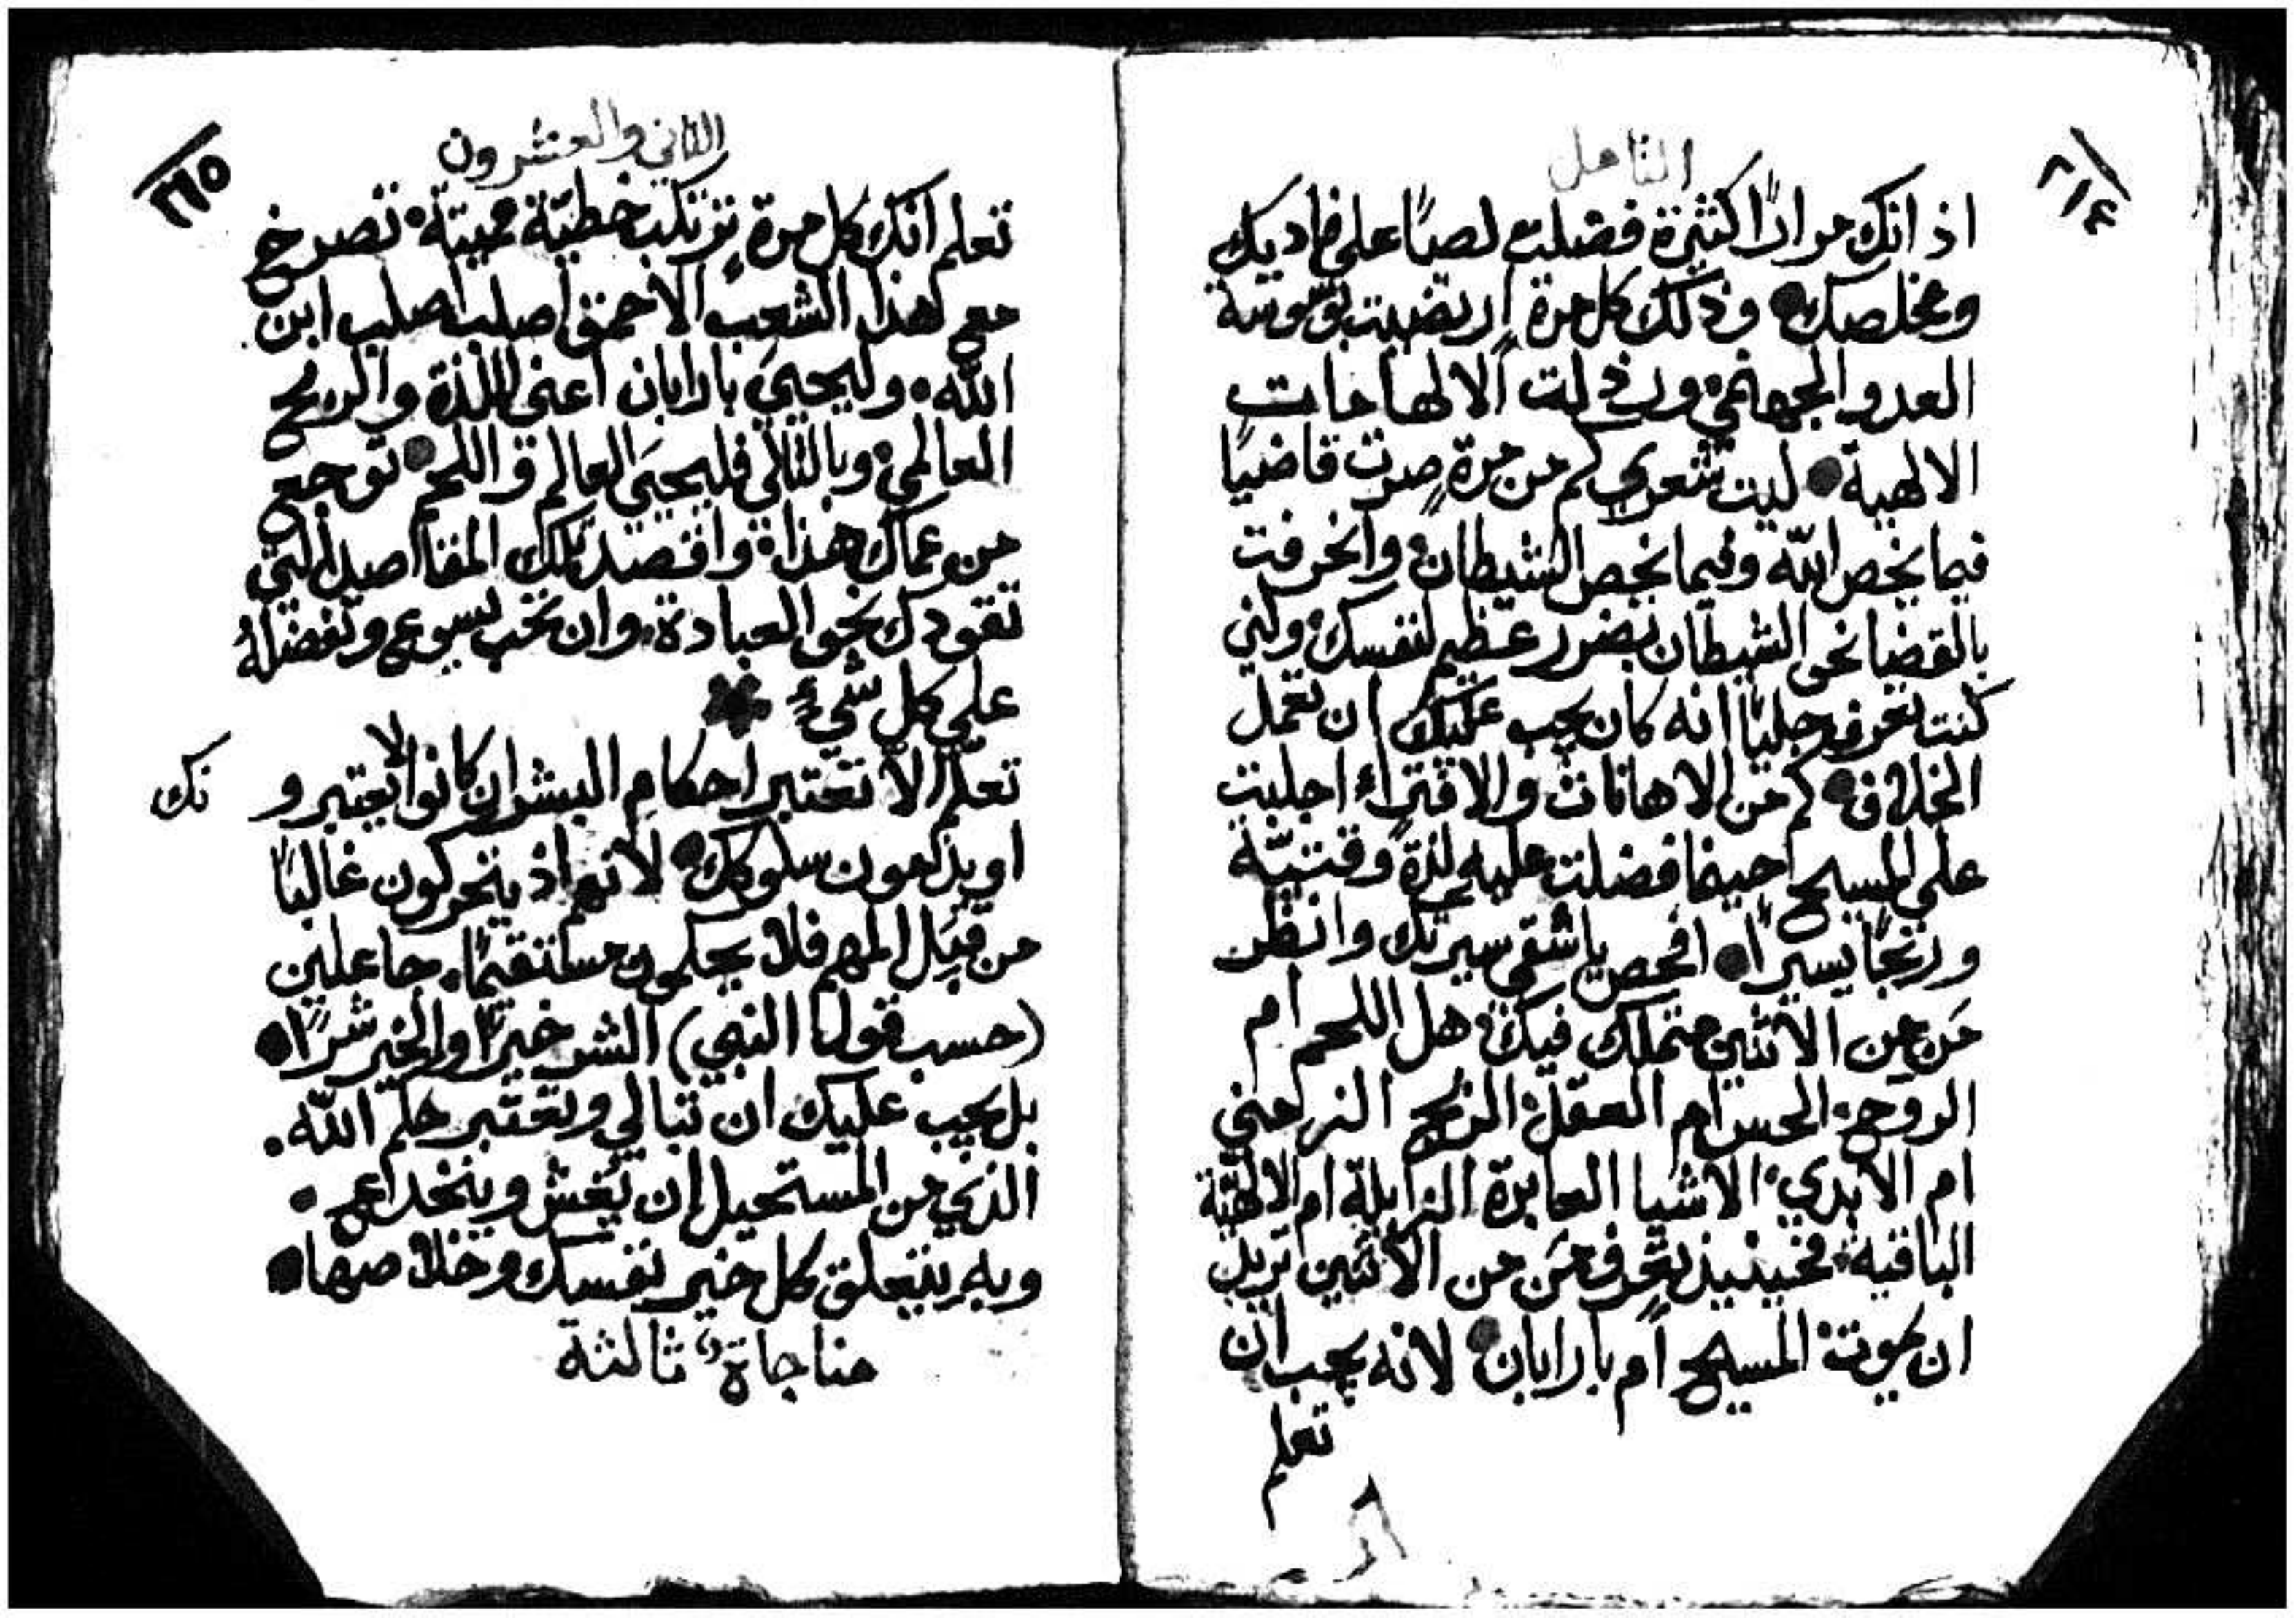 التامل
٢١٤
اذ انك مرارًا كثيرة فضلت لصًا على فاديك
ومخلصك • وذلك كل مرة ارتضيت بوسوسة
العدو الجهنمي، ورذلت الالهامات
الالهية • ليت شعري كم من مرةٍ صرت قاضيًا
فيما يخص الله وفيما يخص الشيطان، وانحرفت
بالقضا نحو الشيطان بضرر عظيم لنفسك، ولئن
كنت تعرف جليًا انه كان يجب عليك ان تعمل
الخلاف • كم من الاهانات والافتراء اجلبت
على المسيح حينما فضلت عليه لذةً وقتيّة
وربحًا يسيرًا • افحص يا شقي سيرتك وانظر
مَن من الاثنين متملك فيك، هل اللحم ام
الروح، الحس ام العقل، الربح الزمني
ام الابدي، الاشيا العابرة الزايلة ام الالهيّة
الباقية، فحينيذٍ تعرف مَن من الاثنين تريد
ان يموت، المسيح ام بارابان • لانه يجب ان
تعلم
الثاني والعشرون
٢١٥
تعلم انك كل مرة ترتكب خطيّة مميتة، تصرخ
مع هذا الشعب الاحمق اصلب اصلب ابن
الله. وليحييَ بارابان اعني اللذة والربح
العالمي، وبالتالي فليحيَى العالم واللحم • توجع
من عماك هذا، واقصد تلك المفاصيل التي
تقودك نحو العبادة، وان تحب يسوع وتفضلهُ
على كل شيءٍ *
تعلّم الّا تعتبر احكام البشر ان كانوا يعتبرو نك
او يذمون سلوكك • لانهم اذ يتحركون غالبًا
من قِبَل المهم فلا يحكمون مستقيمًا. جاعلين
(حسب قول النبي) الشر خيرًا والخير شرًا •
بل يجب عليك ان تبالي وتعتبر حكم الله.
الذي من المستحيل ان يُغش وينخدع.
وبه يتعلق كل خير نفسك وخلاصها •
مناجاة ثالثة